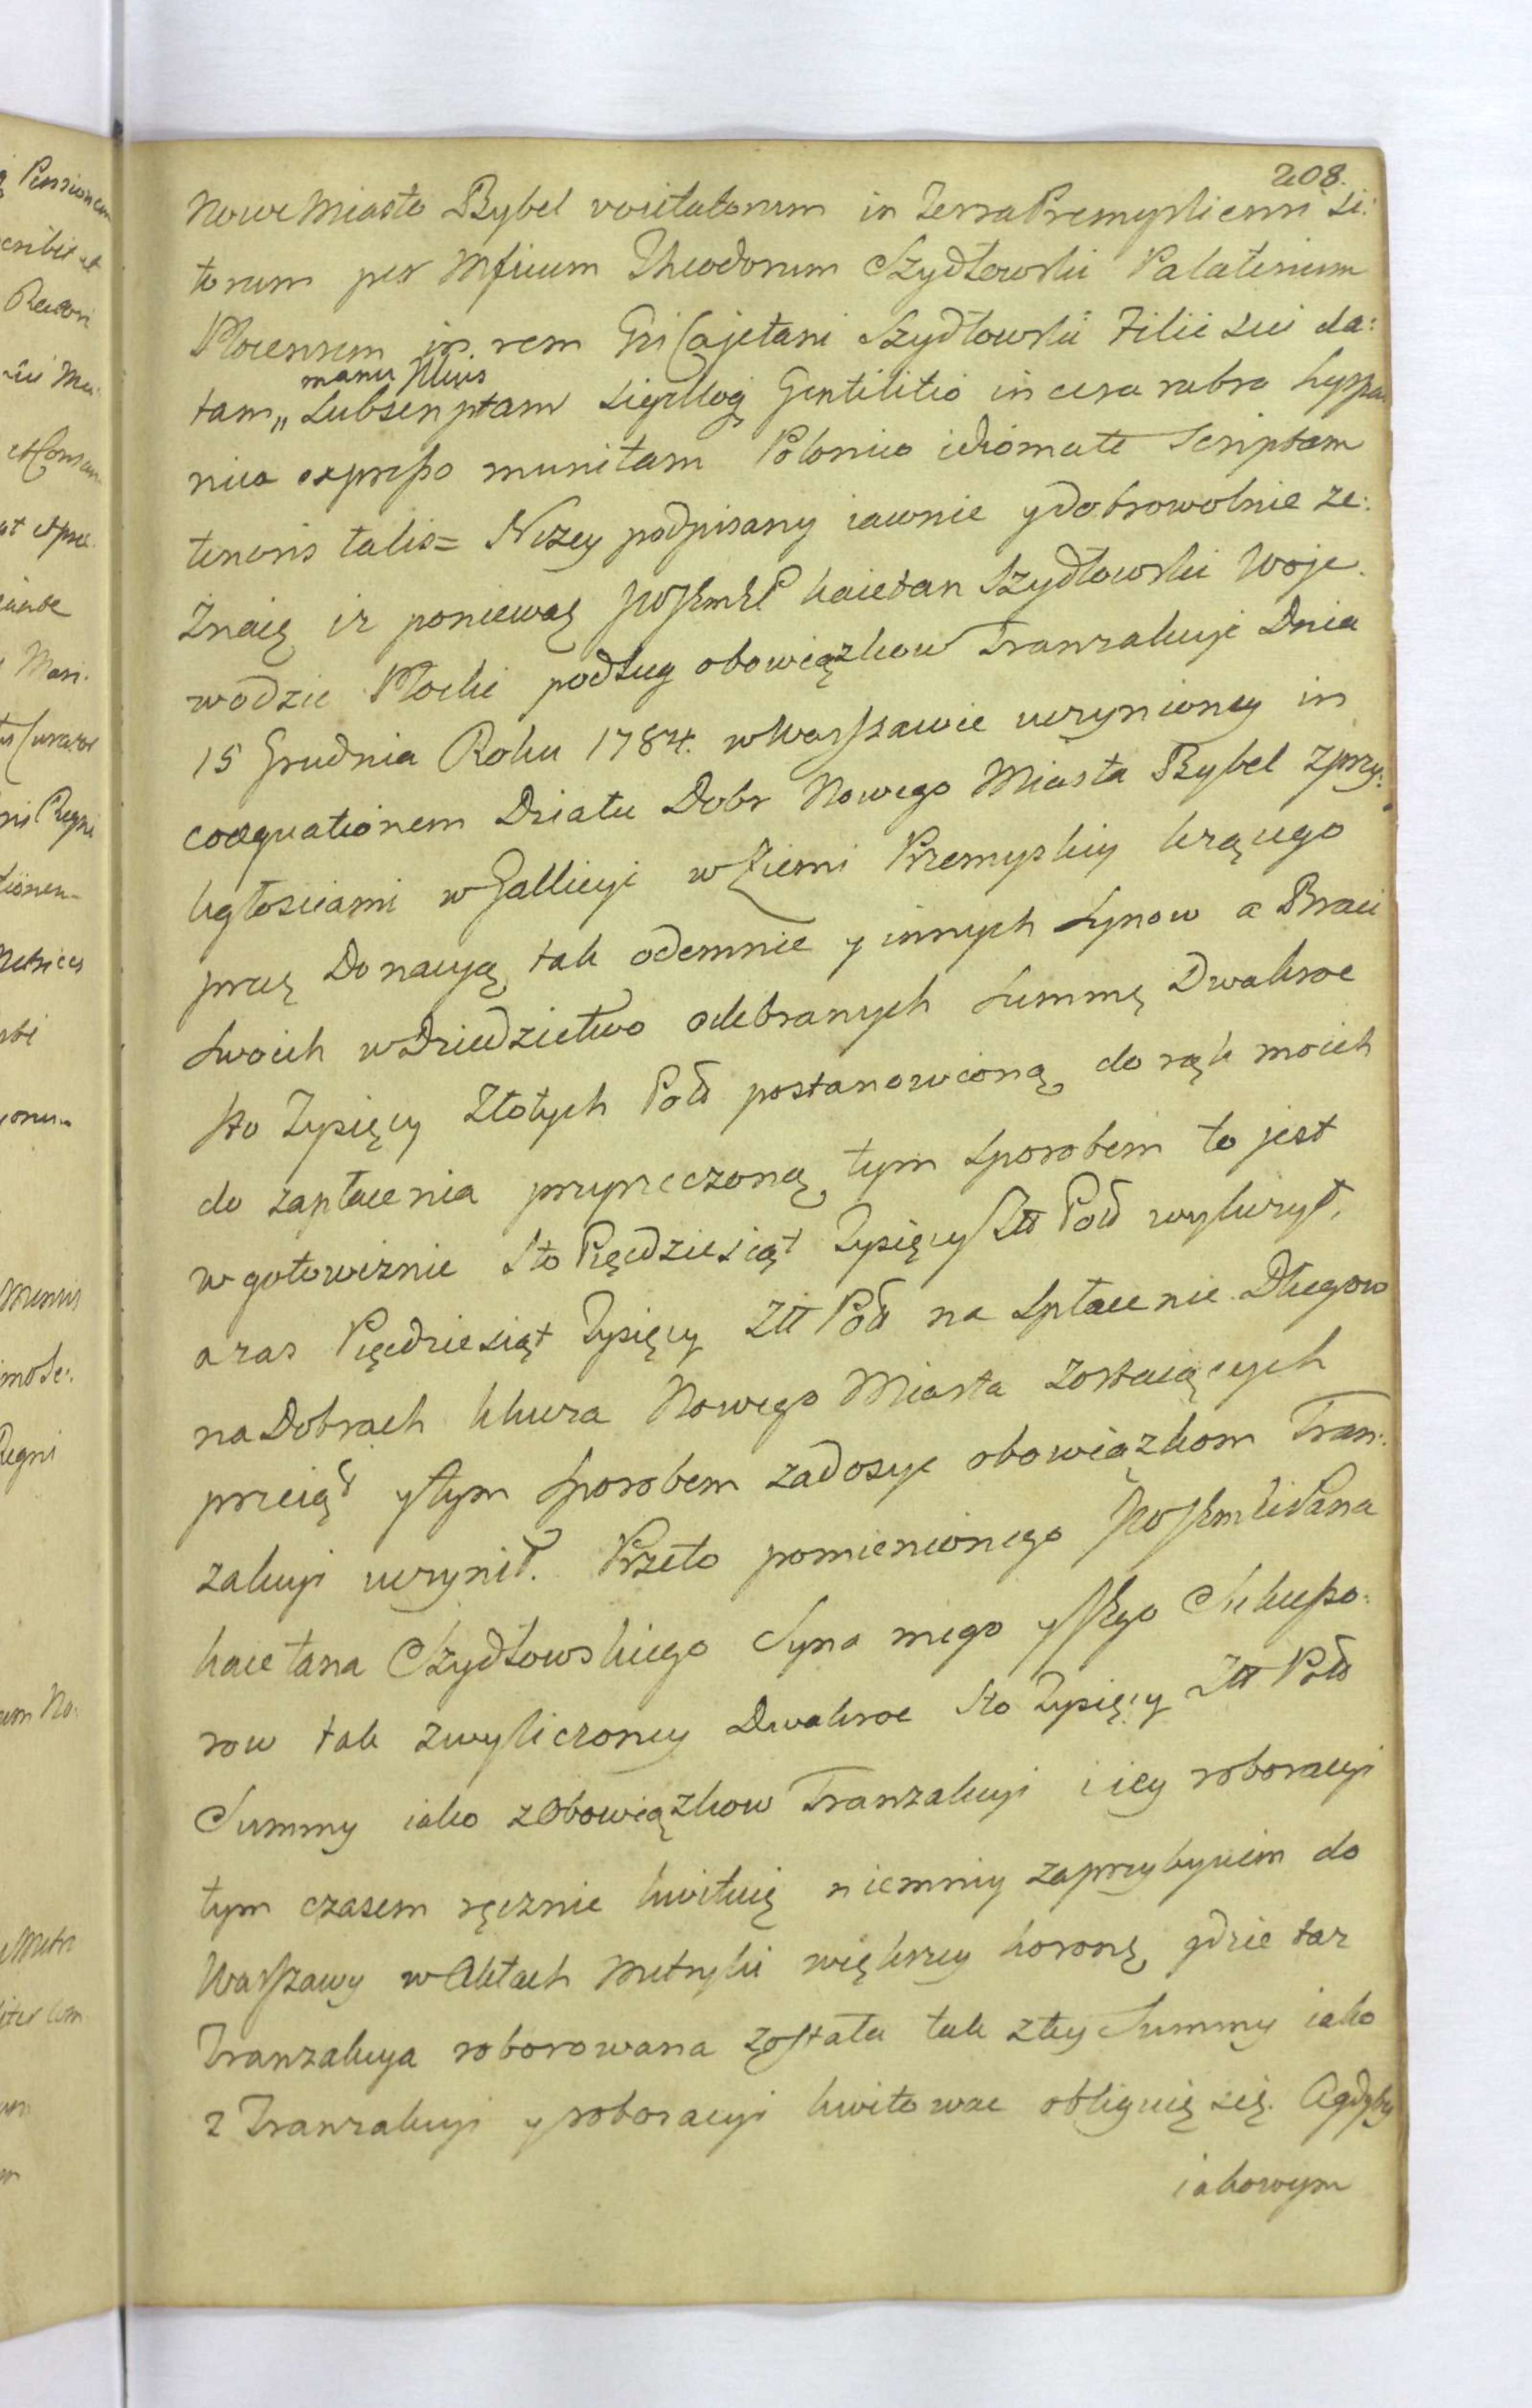 208.
Nowe Miasto Bybel vocitatorum in Terra Premysliensi si:
torum per Mficum Theodorum Szydłowski Palatinum
Plocensem in rem Gsi Cajetani Szydłowski Filii sui da:
manu Illius
tam,, Subscriptam Sigilloq Gentilitio in cera rubra hyspa
nica expresso munitam Polonico idiomate Scriptam
tenoris talis= Niżey podpisany iawnie y dobrowolnie ze:
znaię iż poniewaz Kaietan Szydłowski Woje
wodzic Płocki podług obowiązkow Tranzakcyi Dnia
15 Grudnia Roku 1784. w Warszawie uczynioney in
coæquationem Działu Dobr Nowego Miasta Bybel z przy:
ległosciami w Gallicyi w Ziemi Przemyskiy lezącego
przez Donacyą tak odemnie y innych Synow a Braci
Swoich w Dziedzictwo odebranych Summę Dwakroc
sto Tysięcy Złotych Pols postanowioną do rąk moich
do zapłacenia przyrzeczoną tym sposobem to jest
w gotowiznie Sto Pięcdziesiąt Tysięcy Złł Pols wyliczył,
a zas Pięcdziesiąt Tysięcy Złł Pols na Spłacenie Długow
na Dobrach Klucza Nowego Miasta zostaiących
przeiął y tym sposobem zadosyc obowiązkom Tran:
zakcyi uczynił. Przeto pomienionego Pana
Kaietana Szydłowskiego Syna mego y Jego Sukcesso:
row tak z wyliczoney Dwakroc sto Tysięcy Złł Pols
Summy iako z Obowiązkow Tranzakcyi i iey roboracyi
tym czasem ręcznie kwituię niemniy za przybyciem do
Warszawy w Aktach Metryki większey koronę gdzie taz
Tranzakcya roborowana została tak z tey Summy iako
z Tranzakcyi y roboracyi kwitowac obliguię się. A gdyby
iakowym